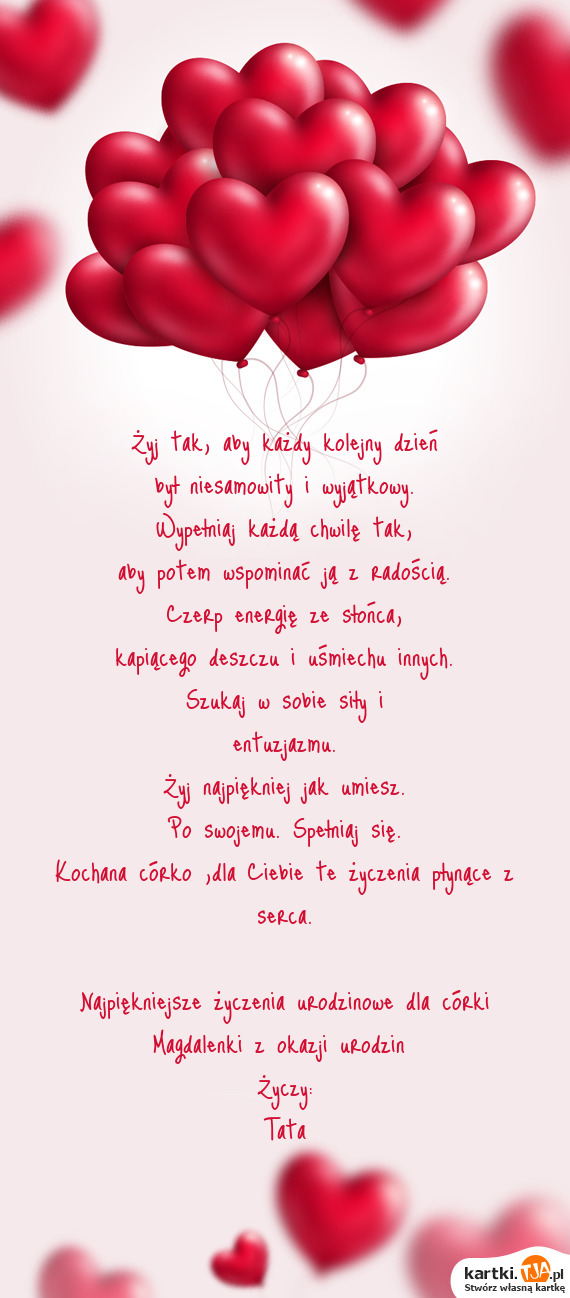 Żyj tak, aby każdy kolejny dzień
był niesamowity i wyjątkowy.
Wypełniaj każdą chwilę tak,
aby potem wspominać ją z radością.
Czerp energię ze słońca,
kapiącego deszczu i uśmiechu innych.
Szukaj w sobie siły i
entuzjazmu.
Żyj najpiękniej jak umiesz.
Po swojemu. Spełniaj się.
Kochana córko ,dla Ciebie te życzenia płynące z
serca.
Najpiękniejsze życzenia urodzinowe dla córki
Magdalenki z okazji urodzin
Życzy:
Tata
kartki.TJA.pl
Stwórz własną kartkę